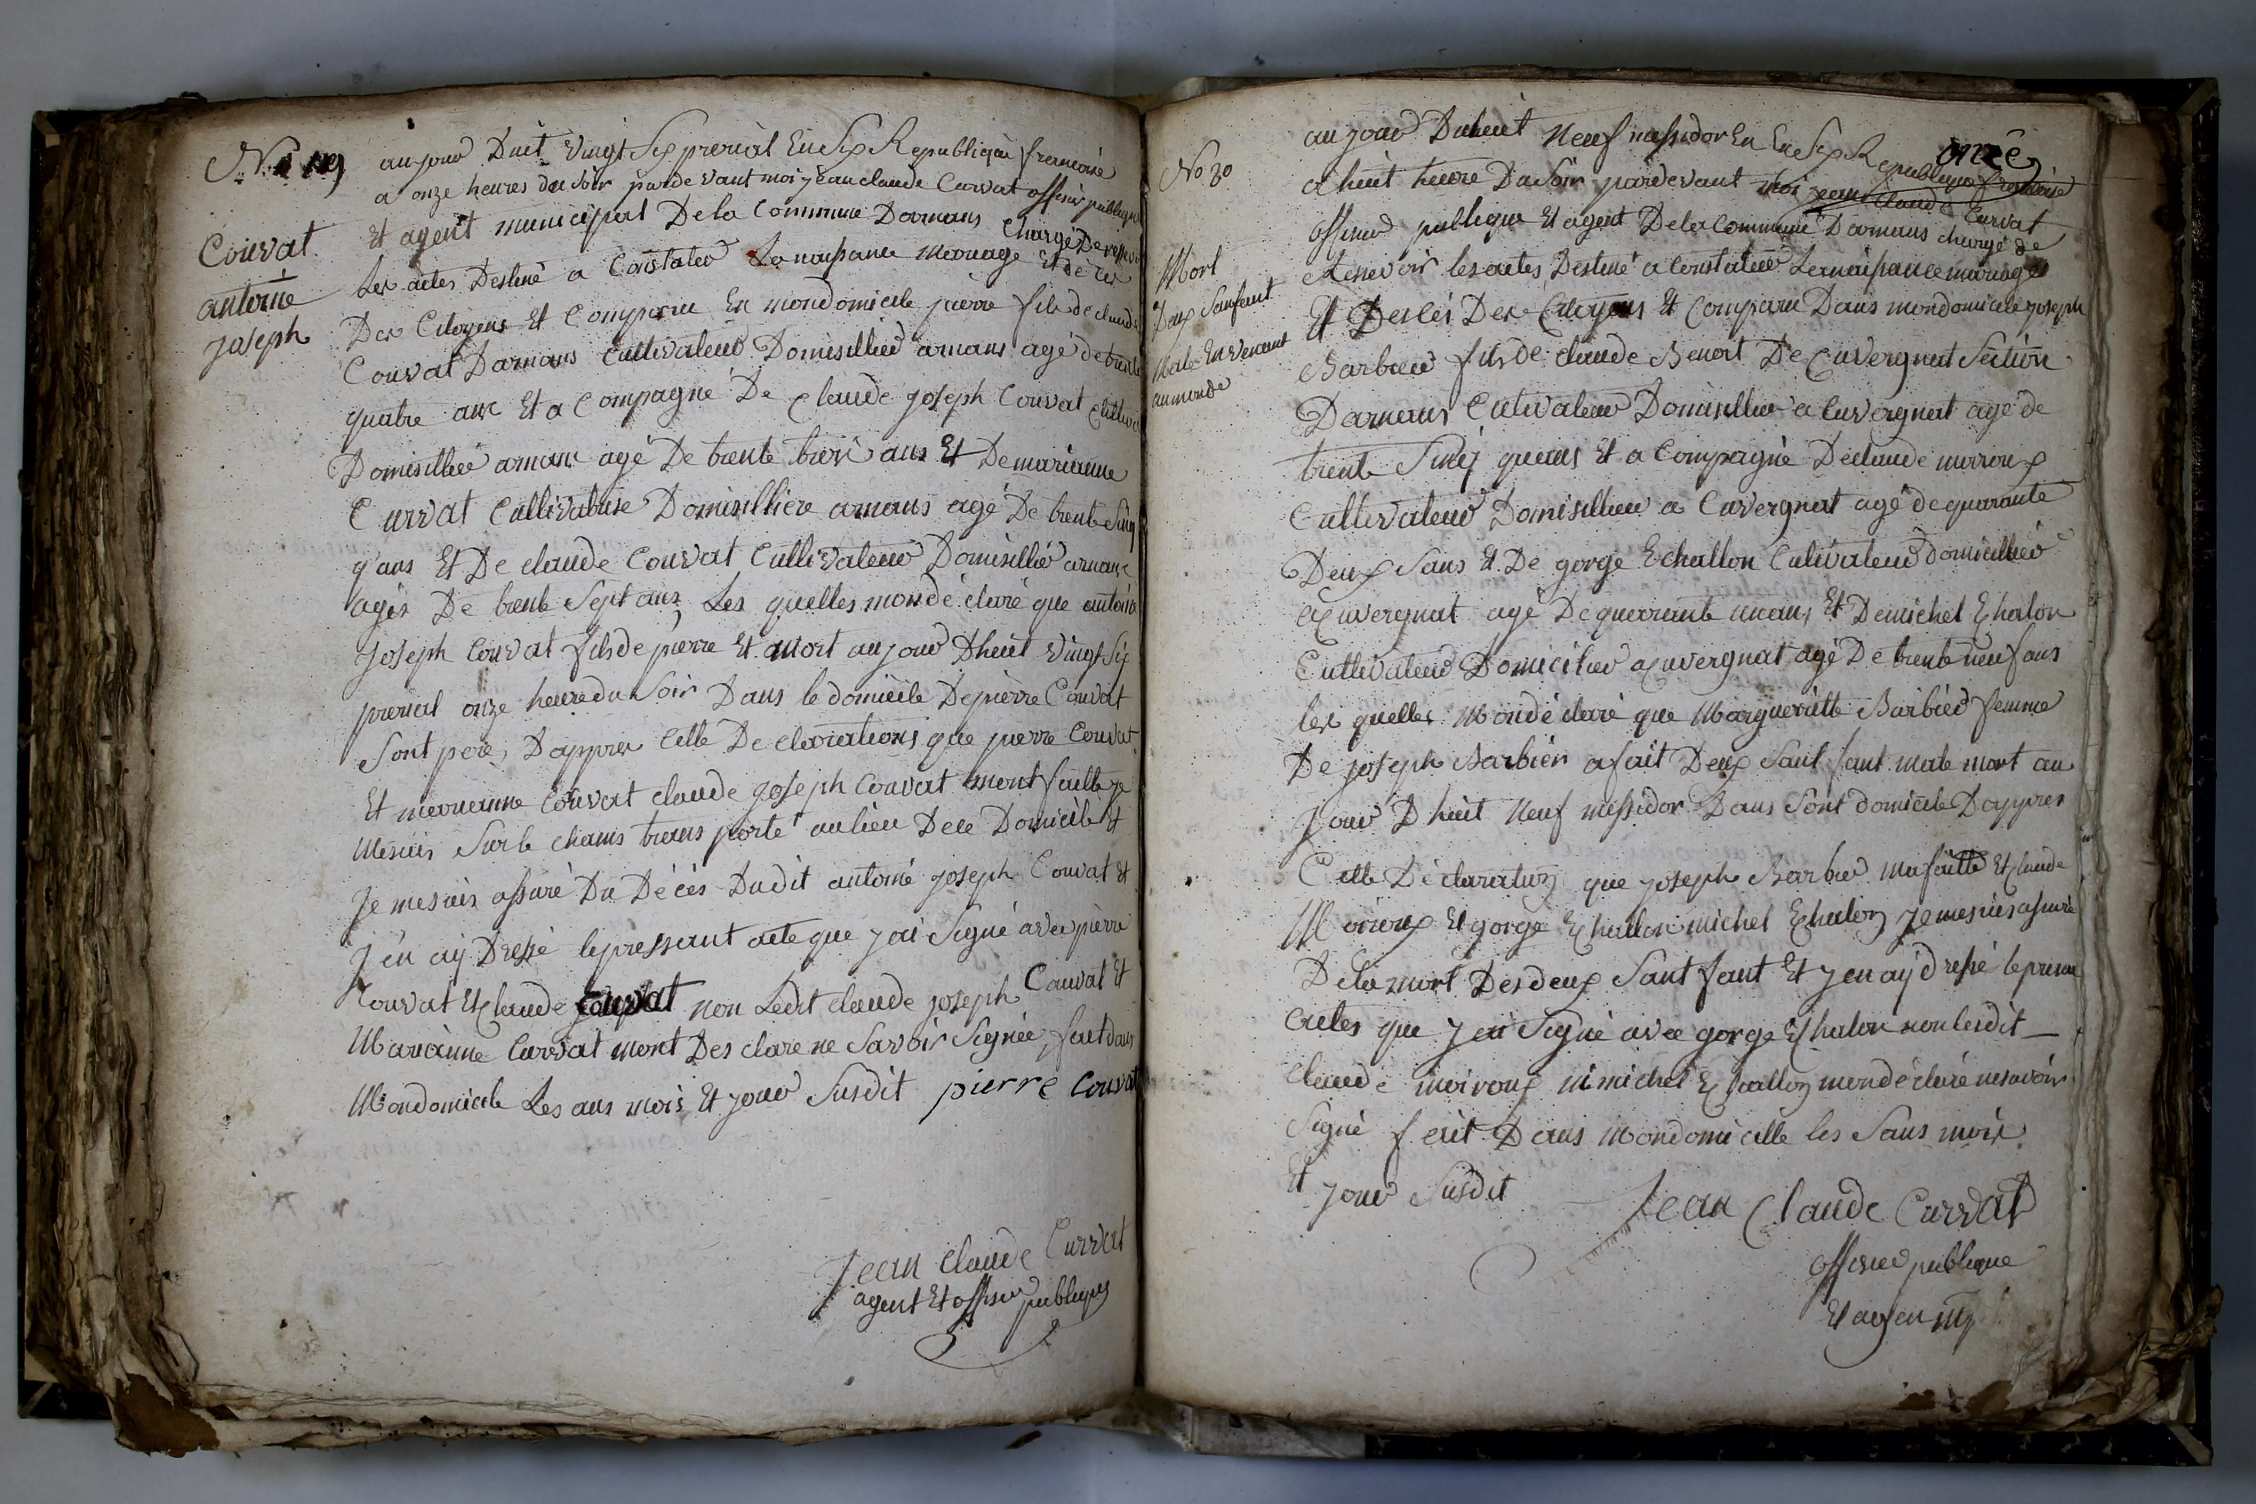 No 19
Couvat
antoine
joseph
aujour Duit vingt Six prerial En Six Republiqain francaise
a onze heures du soir parde vant moi jean claude Curvat officier publique
Et agent municipal De la Commune Darnans Chargé De resevoir
Les actes Destiné a Constater La naissance Meriage Et de ces
Des Citoyens Et Comparu En mondomicile pierre fils de claude
Couvat Darnans Cultivateur Domisillier arnans agé de trente
quatre ans Et a Compagné De claude joseph Couvat Cultiva
Domisillier arnans agé De trente trois ans Et De marianne
Curvat Cultivatrise Domisilliere arnans agé De trente Sinq
q'ans Et De claude Couvat Cultivateur Domisillié arnans
agés De trente Sept ans Les quelles monde claré que antoine
joseph Couvat fils de pierre Et mort au jour Dhuit vingt Six
prerial onze heure du Soir Dans le domicile De pierre Couvat
Sont pere, D'appres Celle De clarations que pierre Couvat
Et marianne Couvat claude joseph Couvat mont faitte je
Mesuis Sur le chams trans porté au lieu De ce Domicile Et
Je mesuis assuré Du Déces Dudit antoine joseph Couvat Et
J'en ay Dressé le pressant acte que jai Signé avec pierre
Couvat Et claude non Ledit claude joseph Couvat Et
Marianne Curvat mont Des clare ne Savoir Signée, fait dans
Mondomicile Les ans mois Et jour Susdit pierre Couvat
Jean Claude Curvat
agent Et offisier publiques
onze
No 20
Mort
Deux Sanfant
Male En Venant
aumonde
au jour Duhuit Neuf messidor En En Six Republique francaise
a huit heure Du Soir pardevant moi jean claude Curvat
offisier publique Et agent De la Commune Darnans chargé de
Resevoir les actes Destiné a Constateer La naissance mariage
Et Des Cés Des Citoyens Et Comparu Dans mondomicile joseph
Barbier fils de claude Benoit De Cuvergnat Section
Darnans Cultivateur Domisillier a Cuvergnat agé de
trente Sinq queans Et a Compagné De claude moiroux
Cultivateur Domisillier a Cuvergnat agé de quarante
Deux Sans Et De gorge Echallon Cultivateur domicillier
a Cuvergnat agé De quarante un ans Et De michel Echalon
Cultivateur Domicilier a Cuvergnat agé De trente neuf ans
les quelles Mondé claré que Margueritte Barbier femme
De joseph Barbier afait Deux Sant fant male mort au
jour D huit Neuf messidor Dans Sont domicile D'appres
Celle Dé claration que joseph Barbier mafaitte Et claude
Moiroux Et gorge Echalon michel Echalon je mesuis assuré
De la mort Des deux Sant fant Et j'en ay dressé le presan
actes que jai Signé avec gorge Echalon non lesdit
claude moiroux ni michel Echallon mondé claré ne savoir
Signé fait Dans Mondomicille les Sans mois
Et jour Susdit
Jean Claude Curvat
offisier publique
Et agen